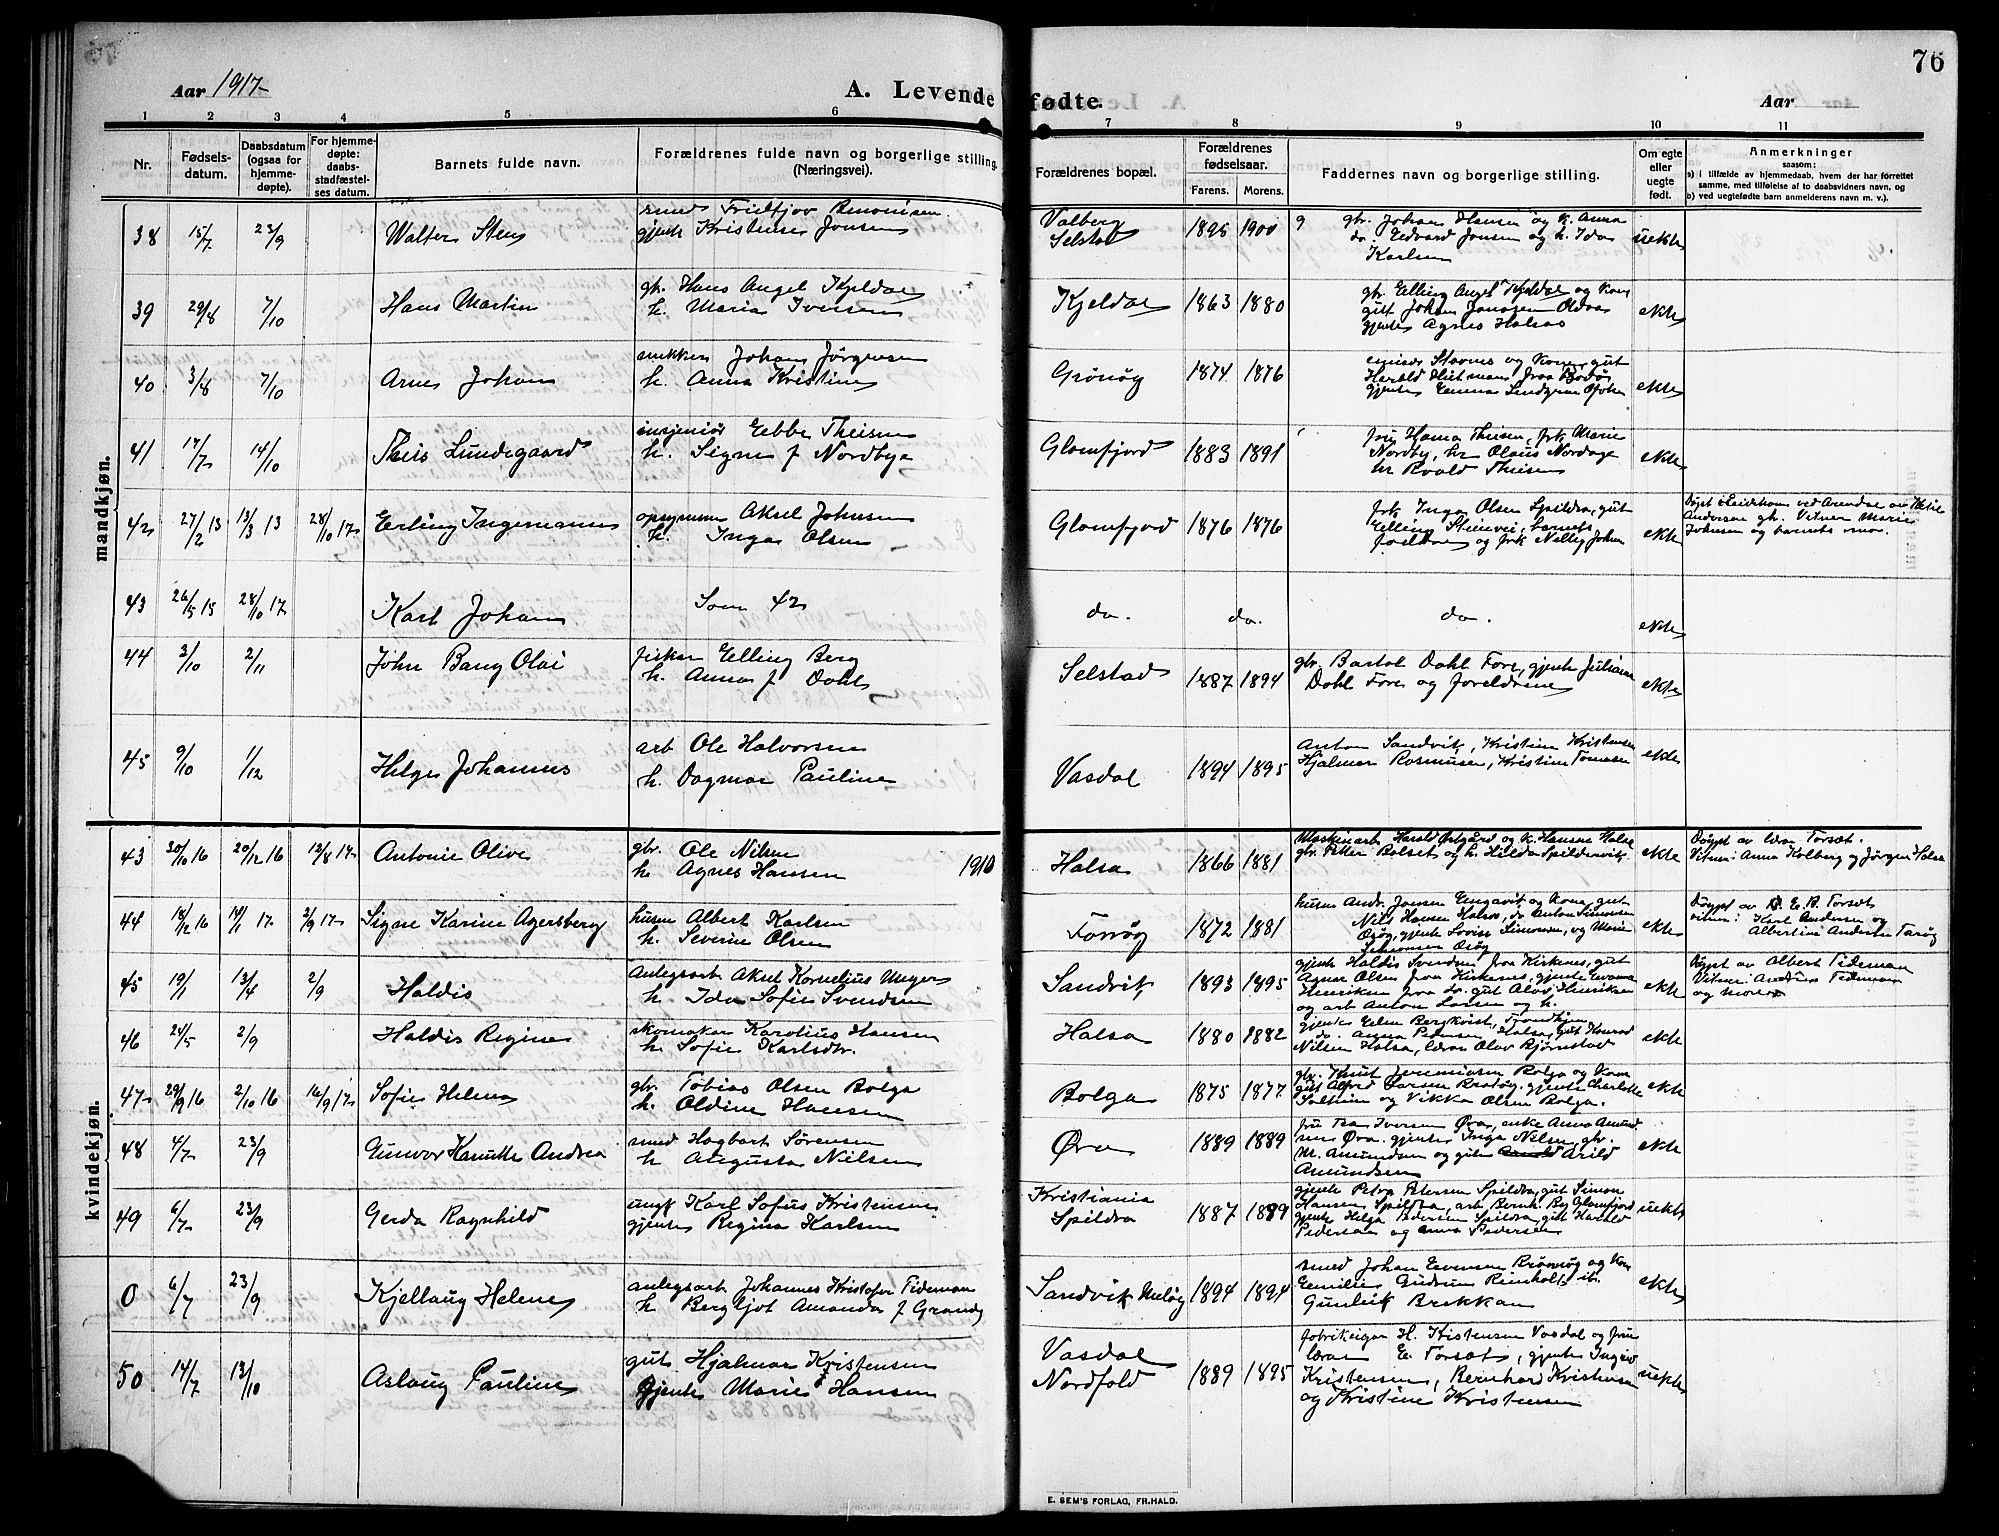 76
Aar 1917
A. Levende fødte.
Aar
1 2 3 4 5 6 7 8 9 10 11
Nr.
Fødsels-
datum.
Daabsdatum
(ogsaa for
hjemme-
døpte).
For hjemme-
døpte:
daabs-
stadfæstel-
ses datum.
Barnets fulde navn.
Forældrenes fulde navn og borgerlige stilling.
(Næringsvei).
Forældrenes bopæl.
Forældrenes
fødselsaar.
Farens. Morens.
Faddernes navn og borgerlige stilling.
Om egte
eller
uegte
født.
Anmerkninger
saasom:
a) i tilfælde av hjemmedaab, hvem der har forrettet
samme, med tilføielse af to daabsvidners navn, og
b) ved uegtefødte barn anmelderens navn m. v.).
mandkjøn.
38 15/7 23/9 Walter Sten
smed Fridtjov
gjente Kristense Jensen
Valberg
Selstad
1900
gbr. Johan Hansen og k. Anna
do. Edvard Jensen og h. Ida
Karlsen
uekte
39 29/8 7/10 Hans Martin
gb. Hans Angel Kjeldal
h. Maria Iversen
Kjeldal 1863 1880
gbr Elling Angel Kjeldal og kone
gut Johan
gjente Agnes Halsa
ekte
40 3/8 7/10 Arne Johan
snekker Johan Jørgensen
h. Anna Kristine
Grønøy 1874 1876
Stavnes og kone, gut
Herold fraa Bodø,
gjente Emma
ekte
41 17/7 14/10 Theis Lundegaard
insjeniør Ebbe Theisen
h. Signe f Nordbye
Glomfjord 1883 1891
fru Hanna Theisen, frk Marie
Nordby, hr Olaus Nordage
hr Roald Theisen
ekte
42 27/2 13 13/3 13 28/10 17 Erling Ingemann
opsynsm Aksel Johnsen
h. Inga Olsen
Glomfjord 1876 1876
frk Inga Olsen Spildra, gut
Elling Steinvei, barnets
foreldre og frk Nelly Johnsen
ekte
Døpt i ved Arendal av
Andersen gb. Vitner Marie
Johnsen og barnets mor.
43 26/5 15 28/10 17 Karl Johan
Som 42
do. do. do.
ekte
44 3/10 2/11 John Bang Olai
fisker Elling Berg
h. Anna f Dahl
Selstad 1887 1894
gbr. Bartol Dahl Fore, gjente Juliane
Dahl Fore og foreldrene
ekte
45 9/10 1/12 Helge Johannes
arb Ole Halvorsen
h. Dagmar Pauline
Vasdal 1894 1895
Anton Sandvik, Kristine Kristensen
Hjalmar Rasmussen, Kristine Tomasen
ekte
kvindekjøn.
43 30/10 16 20/12 16 12/8 17 Antonie Olive
gbr. Ole Nilsen
h. Agnes Hansen 1910
Halsa 1866 1881
Maskinarb Harald Østgård og k. Hansine Halsa
gbr. Peter Bolset og h. Hilda Spildervik
ekte
Døypt av lærar Forsæt.
Vitner: Anna Kolberg og Jørgen Halsa
44 18/12 16 14/1 17 2/9 17 Signe Karine Agersberg
husm Albert Karlsen
h. Severine Olsen
Forøy 1872 1881
husm Andr. Jensen Engavik og kone, gut
Nils Hansen Halsa, do Anton Simonsen
Esøy, gjente Lovise Simonsen, og Marie
Simonsen Esøy
ekte
Døypt av E. B. Forsæt
vitner: Karl Andersen og
Albertine Andersen Forøy
45 19/1 13/4 2/9 Haldis
anlegsarb Aksel Kornelius Meyer
h. Ida Sofie Svendsen
Sandvik 1893 1895
gjente Haldis Svendsen fraa Kirkenes, gut
Agnar Olsen fraa Kirkenes, gjente
Henriksen fraa do. gut Olav Henriksen
og arb Anton Larsen og h.
ekte
Døypt av Albert Tideman
Vitner: Tideman
og mora
46 24/5 2/9 Haldis Regine
skomaker Karolius Hansen
h. Sofie Karlsdtr.
Halsa 1880 1882
gjente Ellen Bergkvist, Trondhjem
do. Anna Pedersen Halsa, gut Konrad
Nilsen Halsa, lærar Olav Bjørnstad
ekte
47 29/9 16 2/10 16 16/9 17 Sofie Helene
gbr. Tobias Olsen Bolga
h. Oldine Hansen
Bolga 1875 1877
gbr. Knut Jeremiassen Bolga og kone
gut Alfred Larsen Rødøy. gjente Charlotte
Solheim og Vikka Olsen Bolga.
ekte
48 4/7 23/9 Gunvor Hanette Andrea
smed Hagbart Sørensen
h Augusta Nilsen
Øra 1889 1889
fru Iversen Øra, enke Anna Amund
sens Øra. gjente Inga Nilsen, gbr.
M. Amundsen og gut Arild
Amundsen
ekte
49 6/7 23/9 Gerda Ragnhild
ungk Karl Sofus Kristensen
gjente Regina Karlsen
Kristiania
Spildra
1887 1889
gjente Petra Petersen Spildra, gut Simon
Hansen Spildra, arb Bernh. Berg Glomfjord
gjente Helga Pedersen Spildra, gut Harald
Pedersen og Anna Pedersen
uekte
0 6/7 23/9 Kjellaug Helene
anlegsarb Johannes Kristofer Tideman
h Bergljot Amanda f Grande
Sandvik Meløy 1894 1894
smed Johan Evensen og kone
Emilie, Gudrun Reinholdt
Gunleik Brekkan
ekte
50 14/7 13/10 Aslaug Pauline
gut Hjalmar Kristensen
gjente Marie Hansen
Vasdal
Nordfold
1889 1895
fabrikeigar H. Kristensen Vasdal og fru
lærar E. Forsæt, gjente Ingev
Kristensen, Bernhard Kristensen
og Kristine Kristensen
uekte
E. SEM'S FORLAG, FR.HALD.